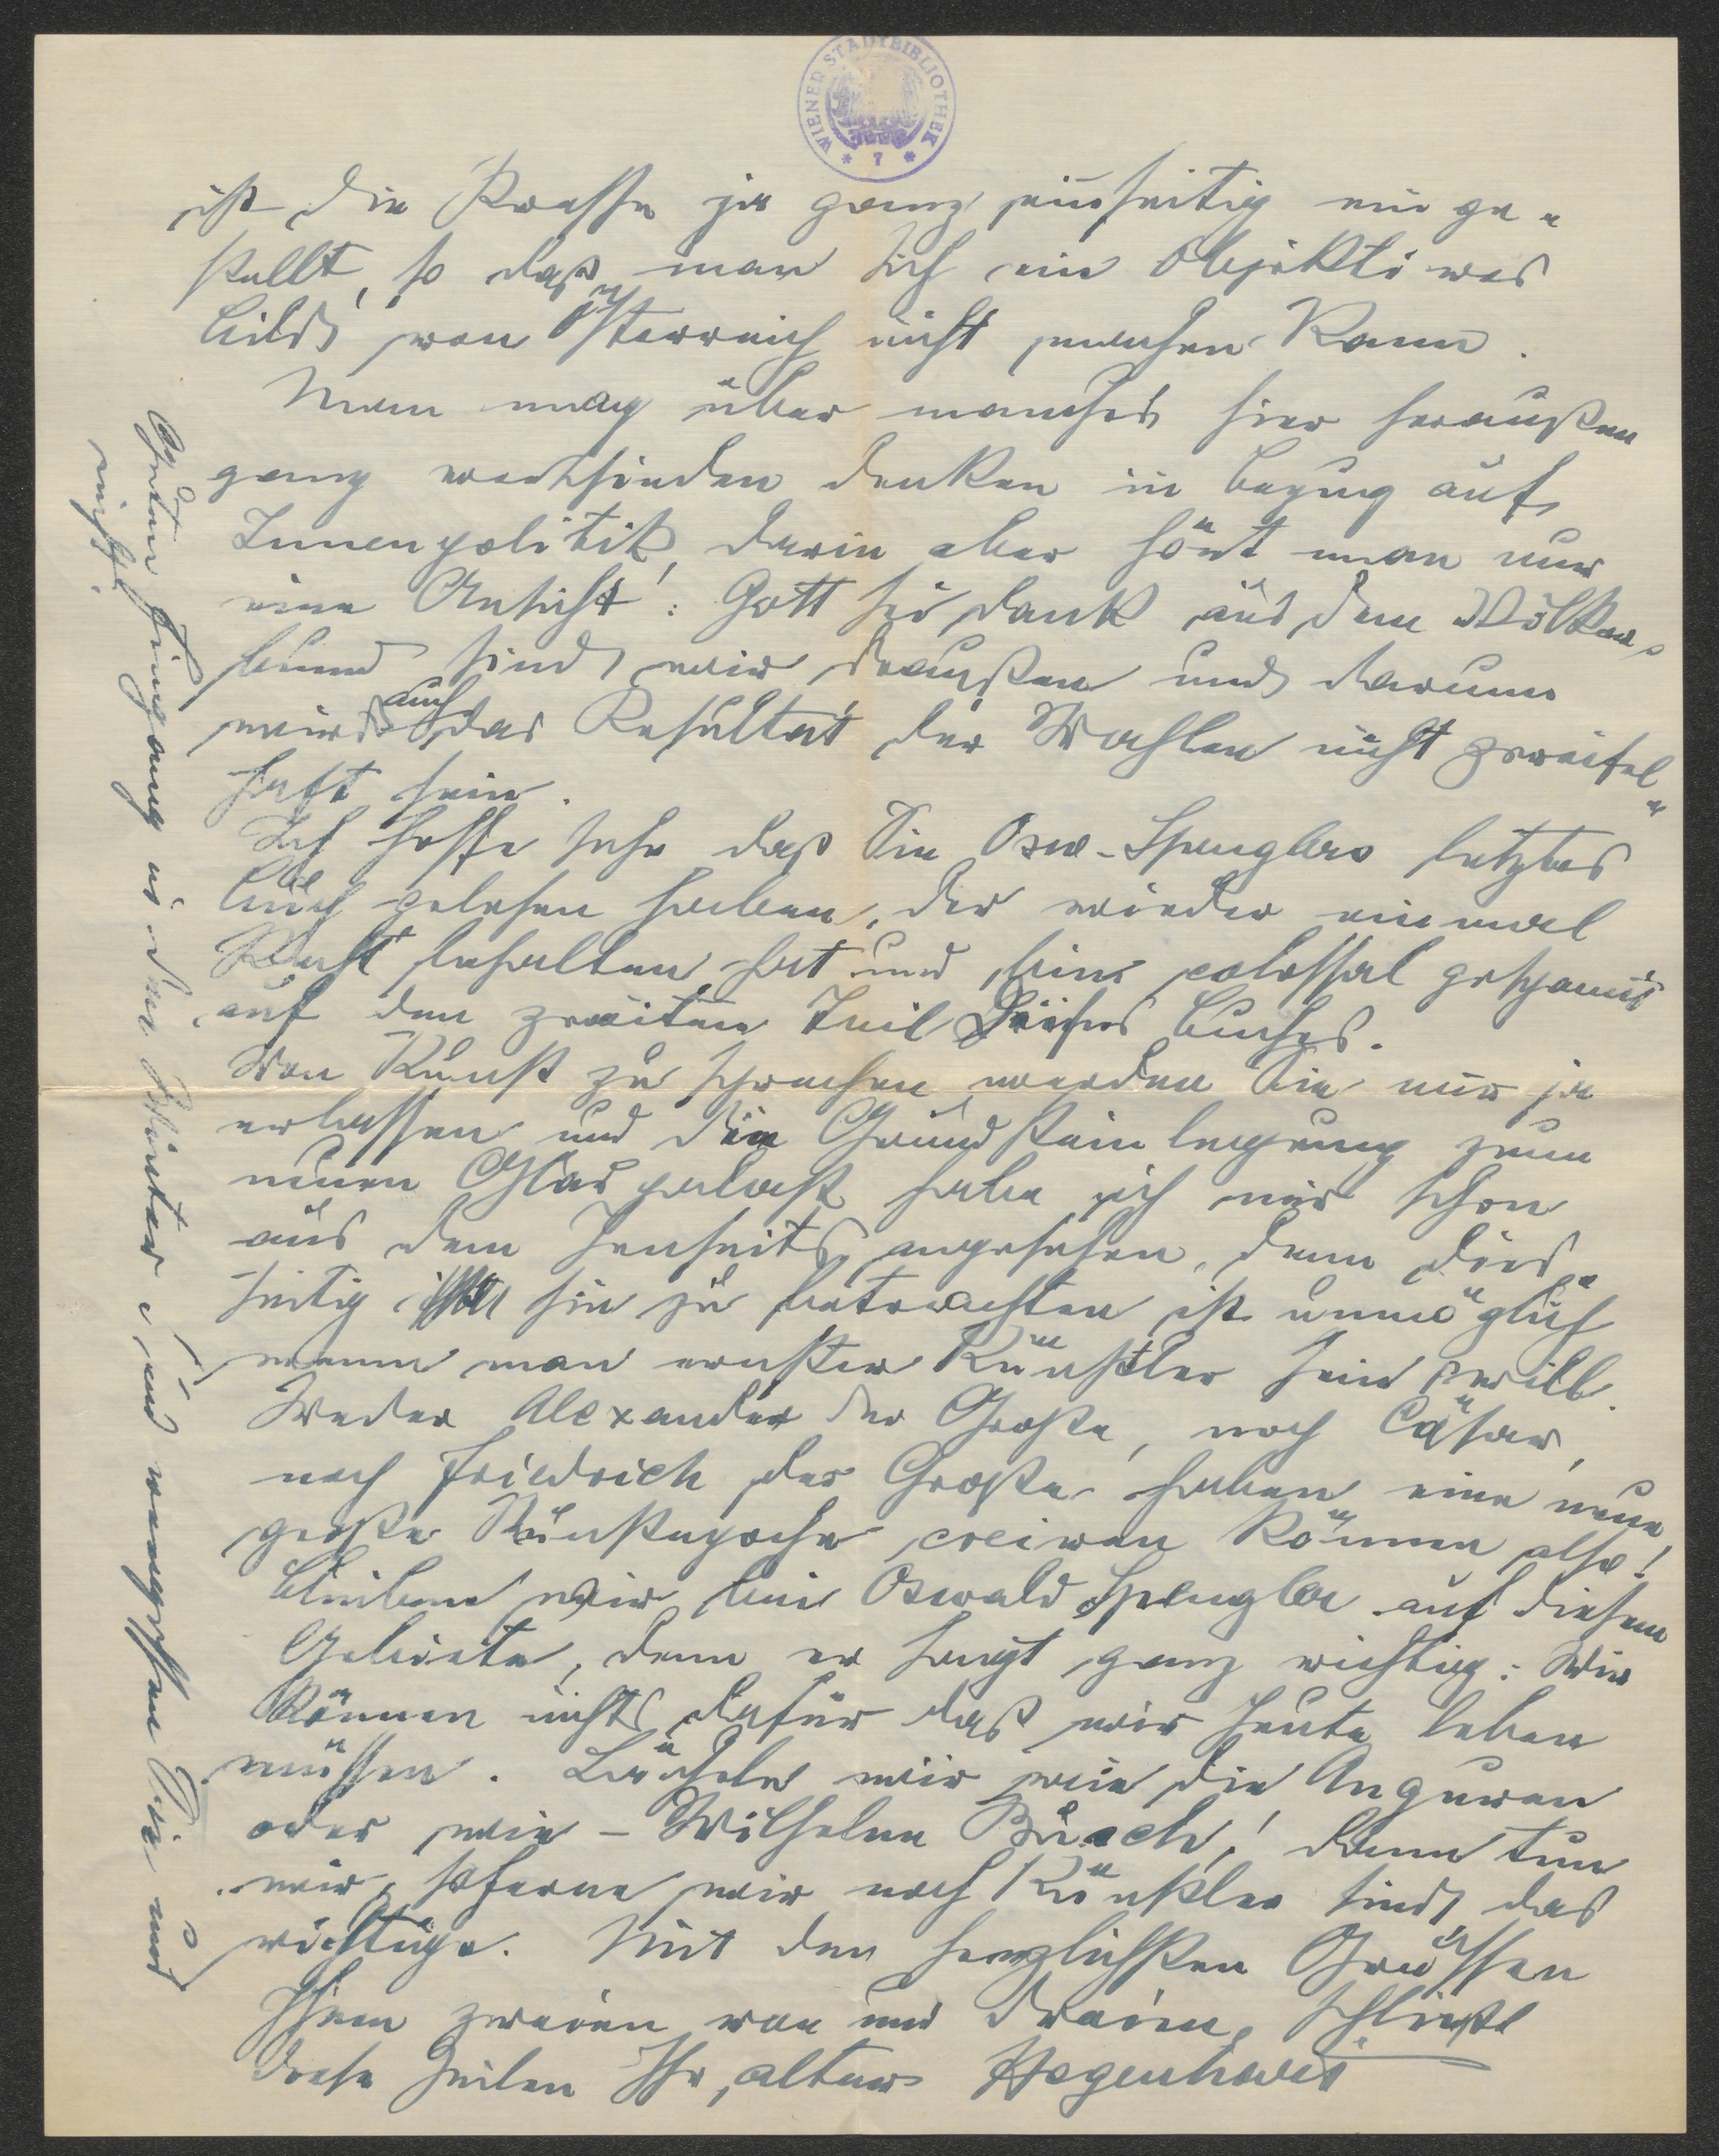 WIENER STADTBIBLIOTHEK
* 7 *
ist die Presse ja ganz einseitig einge-
stellt, so daß man sich ein objektives
Bild von Österreich nicht machen kann.
Man mag über manches hier heraußen
ganz verschieden denken in bezug auf
Innenpolitik, darin aber hört man nur
eine Ansicht!: Gott sei dank aus dem Völker-
bund sind wir draußen und darum
wird auch das Resultat der Wahlen nicht zweifel-
haft sein.
Ich hoffe sehr daß Sie Osw. Spenglers letztes
Buch gelesen haben, der wieder einmal
Recht behalten hat und bin colossal gespannt
auf den zweiten Teil dieses Buches.
Von Kunst zu sprechen werden Sie mir ja
erlassen und die Grundsteinlegung zum
neuen Glaspalast habe ich mir schon
aus dem Jenseits angesehen, denn dies-
seitig sie zu betrachten ist unmöglich
wenn man ernster Künstler sein will.
Weder Alexander der Große, noch Cäsar,
noch Friedrich der Große haben eine neue,
große Kunstepoche creiren können also!
bleiben wir bei Oswald Spengler auf diesem
Gebiete, denn er sagt ganz richtig: Wir
können nichts dafür daß wir heute leben
müssen. Lächeln wir wie die Auguren
oder wie - Wilhelm Busch! dann tun
wir, soferne wir noch Künstler sind das
richtige. Mit den herzlichsten Grüssen
Ihnen zweien von uns dreien, schließt
diese Zeilen Ihr, alter Hegenbart
Guten Eingang in den Winter und vergessen Sie uns
nicht!